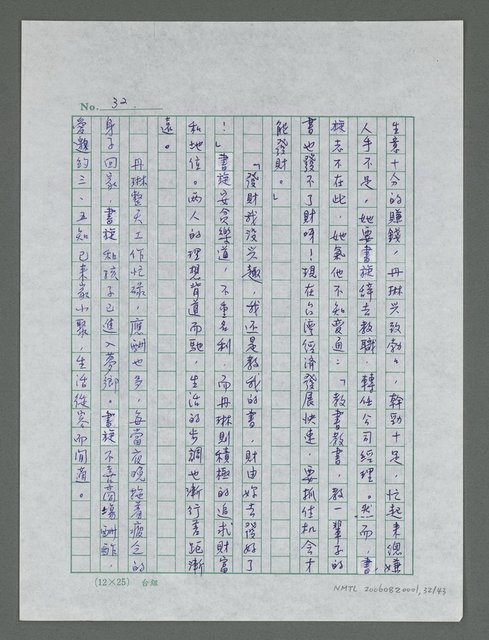 No. 32
生意十分的賺錢，丹琳興致勃勃，幹勁十足，忙起來總嫌
人手不足，她要書旋辭去教職，轉任公司經理。然而，書
旋志不在此，她氣他不知變通：「教書教書，教一輩子的
書也發不了財呀！現在台灣經濟發展快速，要抓住机会才
能發財。」
「發財我沒兴趣，我还是教我的書，財由妳去發好了
！」書旋安貧樂道，不重名利，而丹琳則積極的追求財富
和地位。兩人的理想背道而馳，生活的步調也漸行漸
遠。
丹琳整天工作忙碌，應酬也多，每當夜晚拖著疲倦的
身子回家，書旋和孩子已進入夢鄉。書旋不善商場酬酢，
三、五知已來家小聚，生活從容而閒適。
(12×25) 台組
NMTL 20060820001,32/43